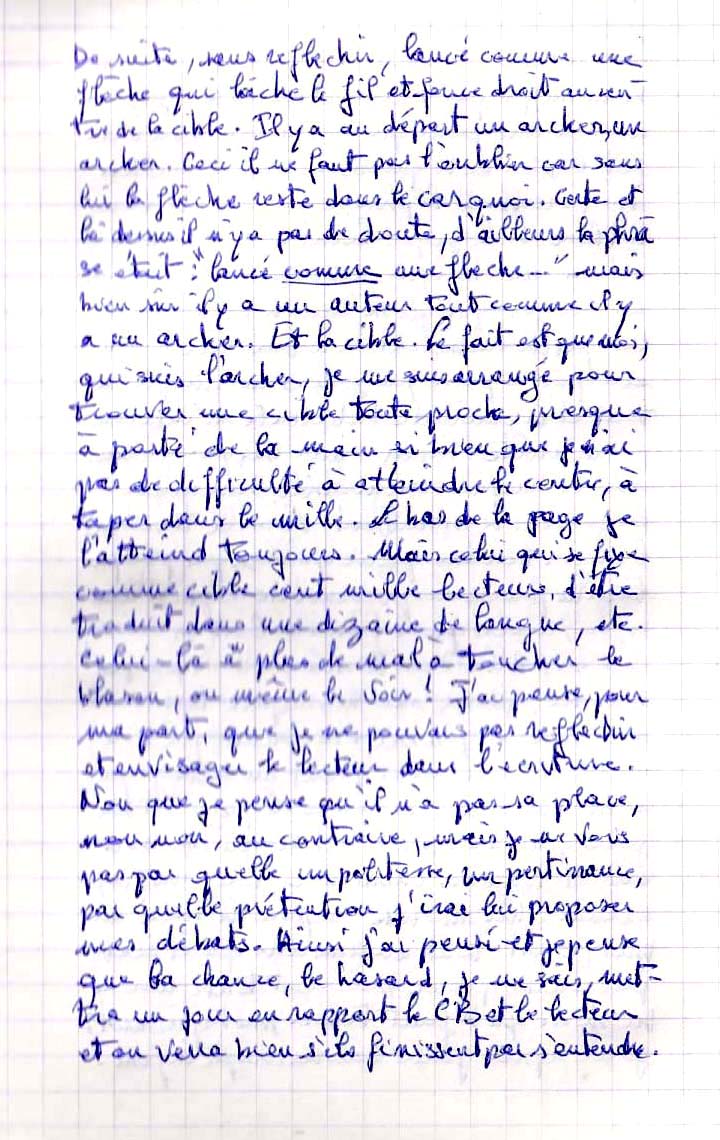 De suite, sans reflechir, lancé comme une
flèche qui lâche le fil et fonce droit au cen-
tre de la cible. Il y a au départ un archer, un
archer. Ceci il ne faut pas l'oublier car sans
lui la flèche reste dans le carquoi. Certe et
là dessus il n'y a pas de doute, d'ailleurs la phra
se était : "lancé comme une fleche..." mais
bien sûr il y a un auteur tout comme il y
a un archer. Et la cible. Le fait est que moi,
qui suis l'archer, je me suis arrangé pour
trouver une cible toute proche, presque
à porté de la main si bien que je n'ai
pas de difficulté à atteindre le centre, à
taper dans le mille. Le bas de la page je
l'atteind toujours. Mais celui qui se fixe
comme cible cent mille lecteurs, d'être
traduit dans une dizaine de langue, etc.
Celui-là a plus de mal à toucher le
blason, ou même le Soir ! J'ai pensé, pour
ma part, que je ne pouvais pas reflechir
et envisager le lecteur dans l'écriture.
Non que je pense qu'il n'a pas sa place,
non non, au contraire, mais je ne vois
pas par quelle impolitesse, impertinance,
par quelle prétention j'irai lui proposer
mes débats. Ainsi j'ai pensé et je pense
que la chance, le hasard, je ne sais, met-
tra un jour en rapport le CB et le lecteur
et on verra bien s'ils finissent par s'entendre.